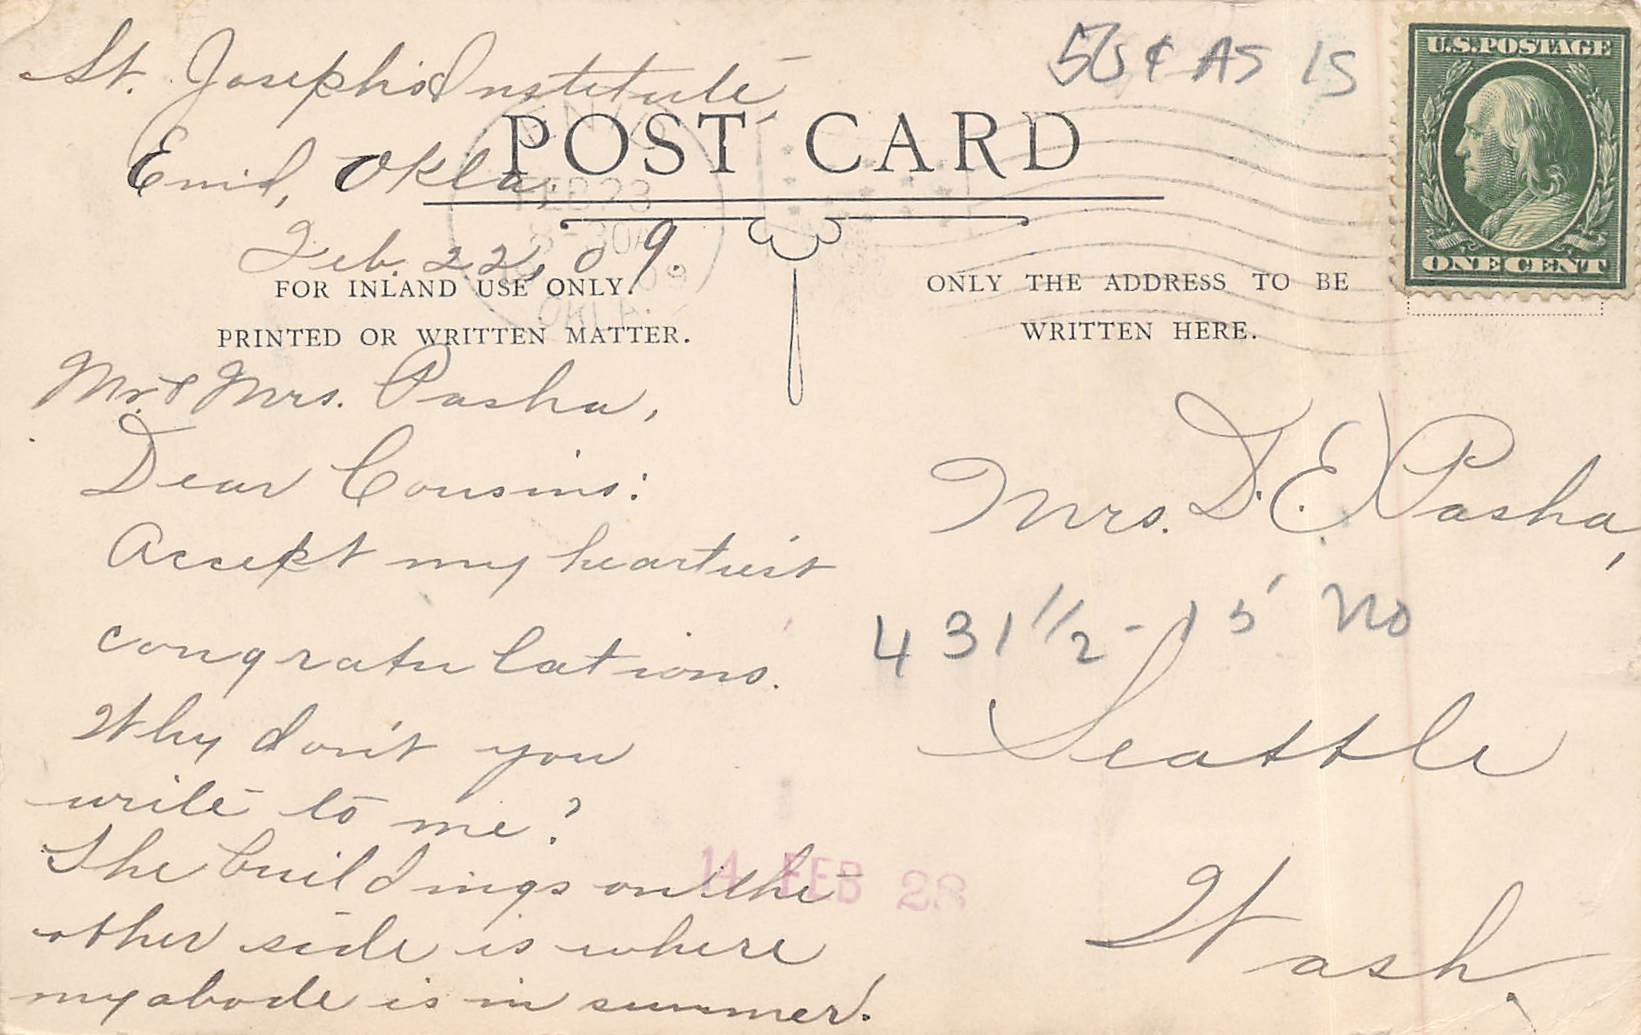 St. Joseph's Institute
Enid, Okla.
Feb. 22, 09.
50¢ AS IS
U.S. POSTAGE
ONE CENT
POST CARD
ENID
FEB 23
8-30A
09
OKLA.
FOR INLAND USE ONLY.
PRINTED OR WRITTEN MATTER.
ONLY THE ADDRESS TO BE
WRITTEN HERE.
Mr. & Mrs. Pasha,
Dear Cousins:
Accept my heartiest
congratulations.
Why don't you
write to me?
The buildings on the
other side is where
my abode is in summer.
Mrs. D. E. Pasha,
431 1/2 - 15 No
Seattle
Wash.
14 FEB 28